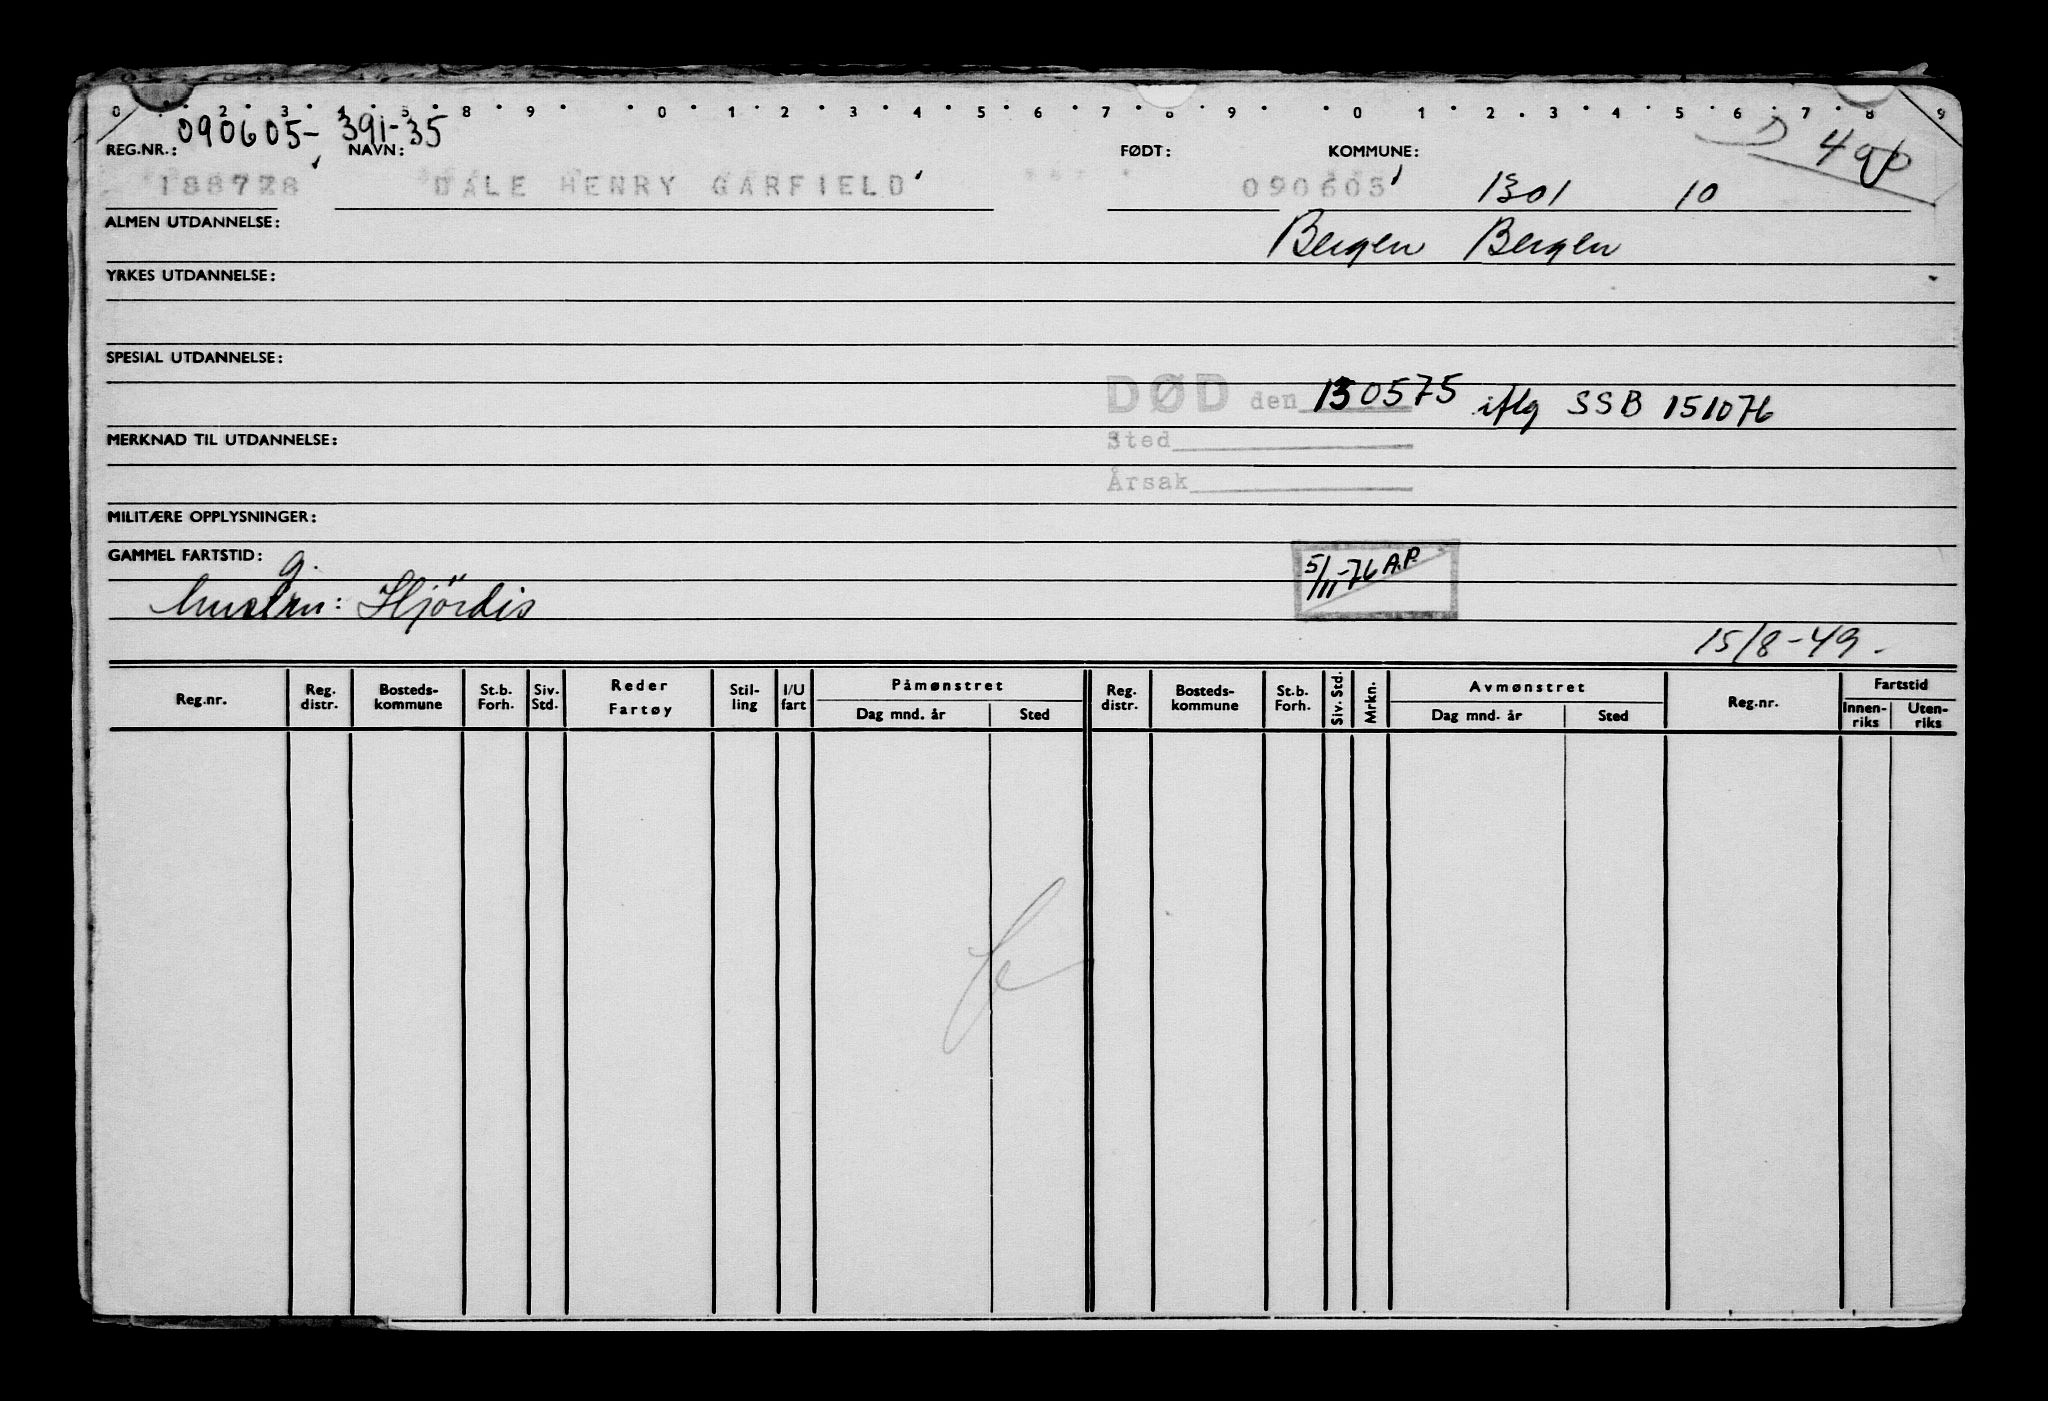 0 2 3 4 5 8 9 0 1 2 3 4 5 6 7 8 9 0 1 2 3 4 5 6 7 8 9
090605-39135
REG.NR.: NAVN: FØDT: KOMMUNE: D 490
188728 DALE HENRY GARFIELD 090605 1301 10
ALMEN UTDANNELSE: Bergen Bergen
YRKES UTDANNELSE:
SPESIAL UTDANNELSE:
DØD den 130575 iflg SSB 151076
MERKNAD TIL UTDANNELSE: Sted
Årsak
MILITÆRE OPPLYSNINGER:
GAMMEL FARTSTID: g. 5/11-76 A.P.
hustru: Hjördis
15/8-49.
Reg.nr. Reg. distr. Bosteds-kommune St.b. Forh. Siv. Std. Reder Fartøy Stil-ling I/U fart Påmønstret Dag mnd. år Sted Reg. distr. Bosteds-kommune St.b. Forh. Siv. Std. Mrkn. Avmønstret Dag mnd. år Sted Reg.nr. Fartstid Innen-riks Uten-riks